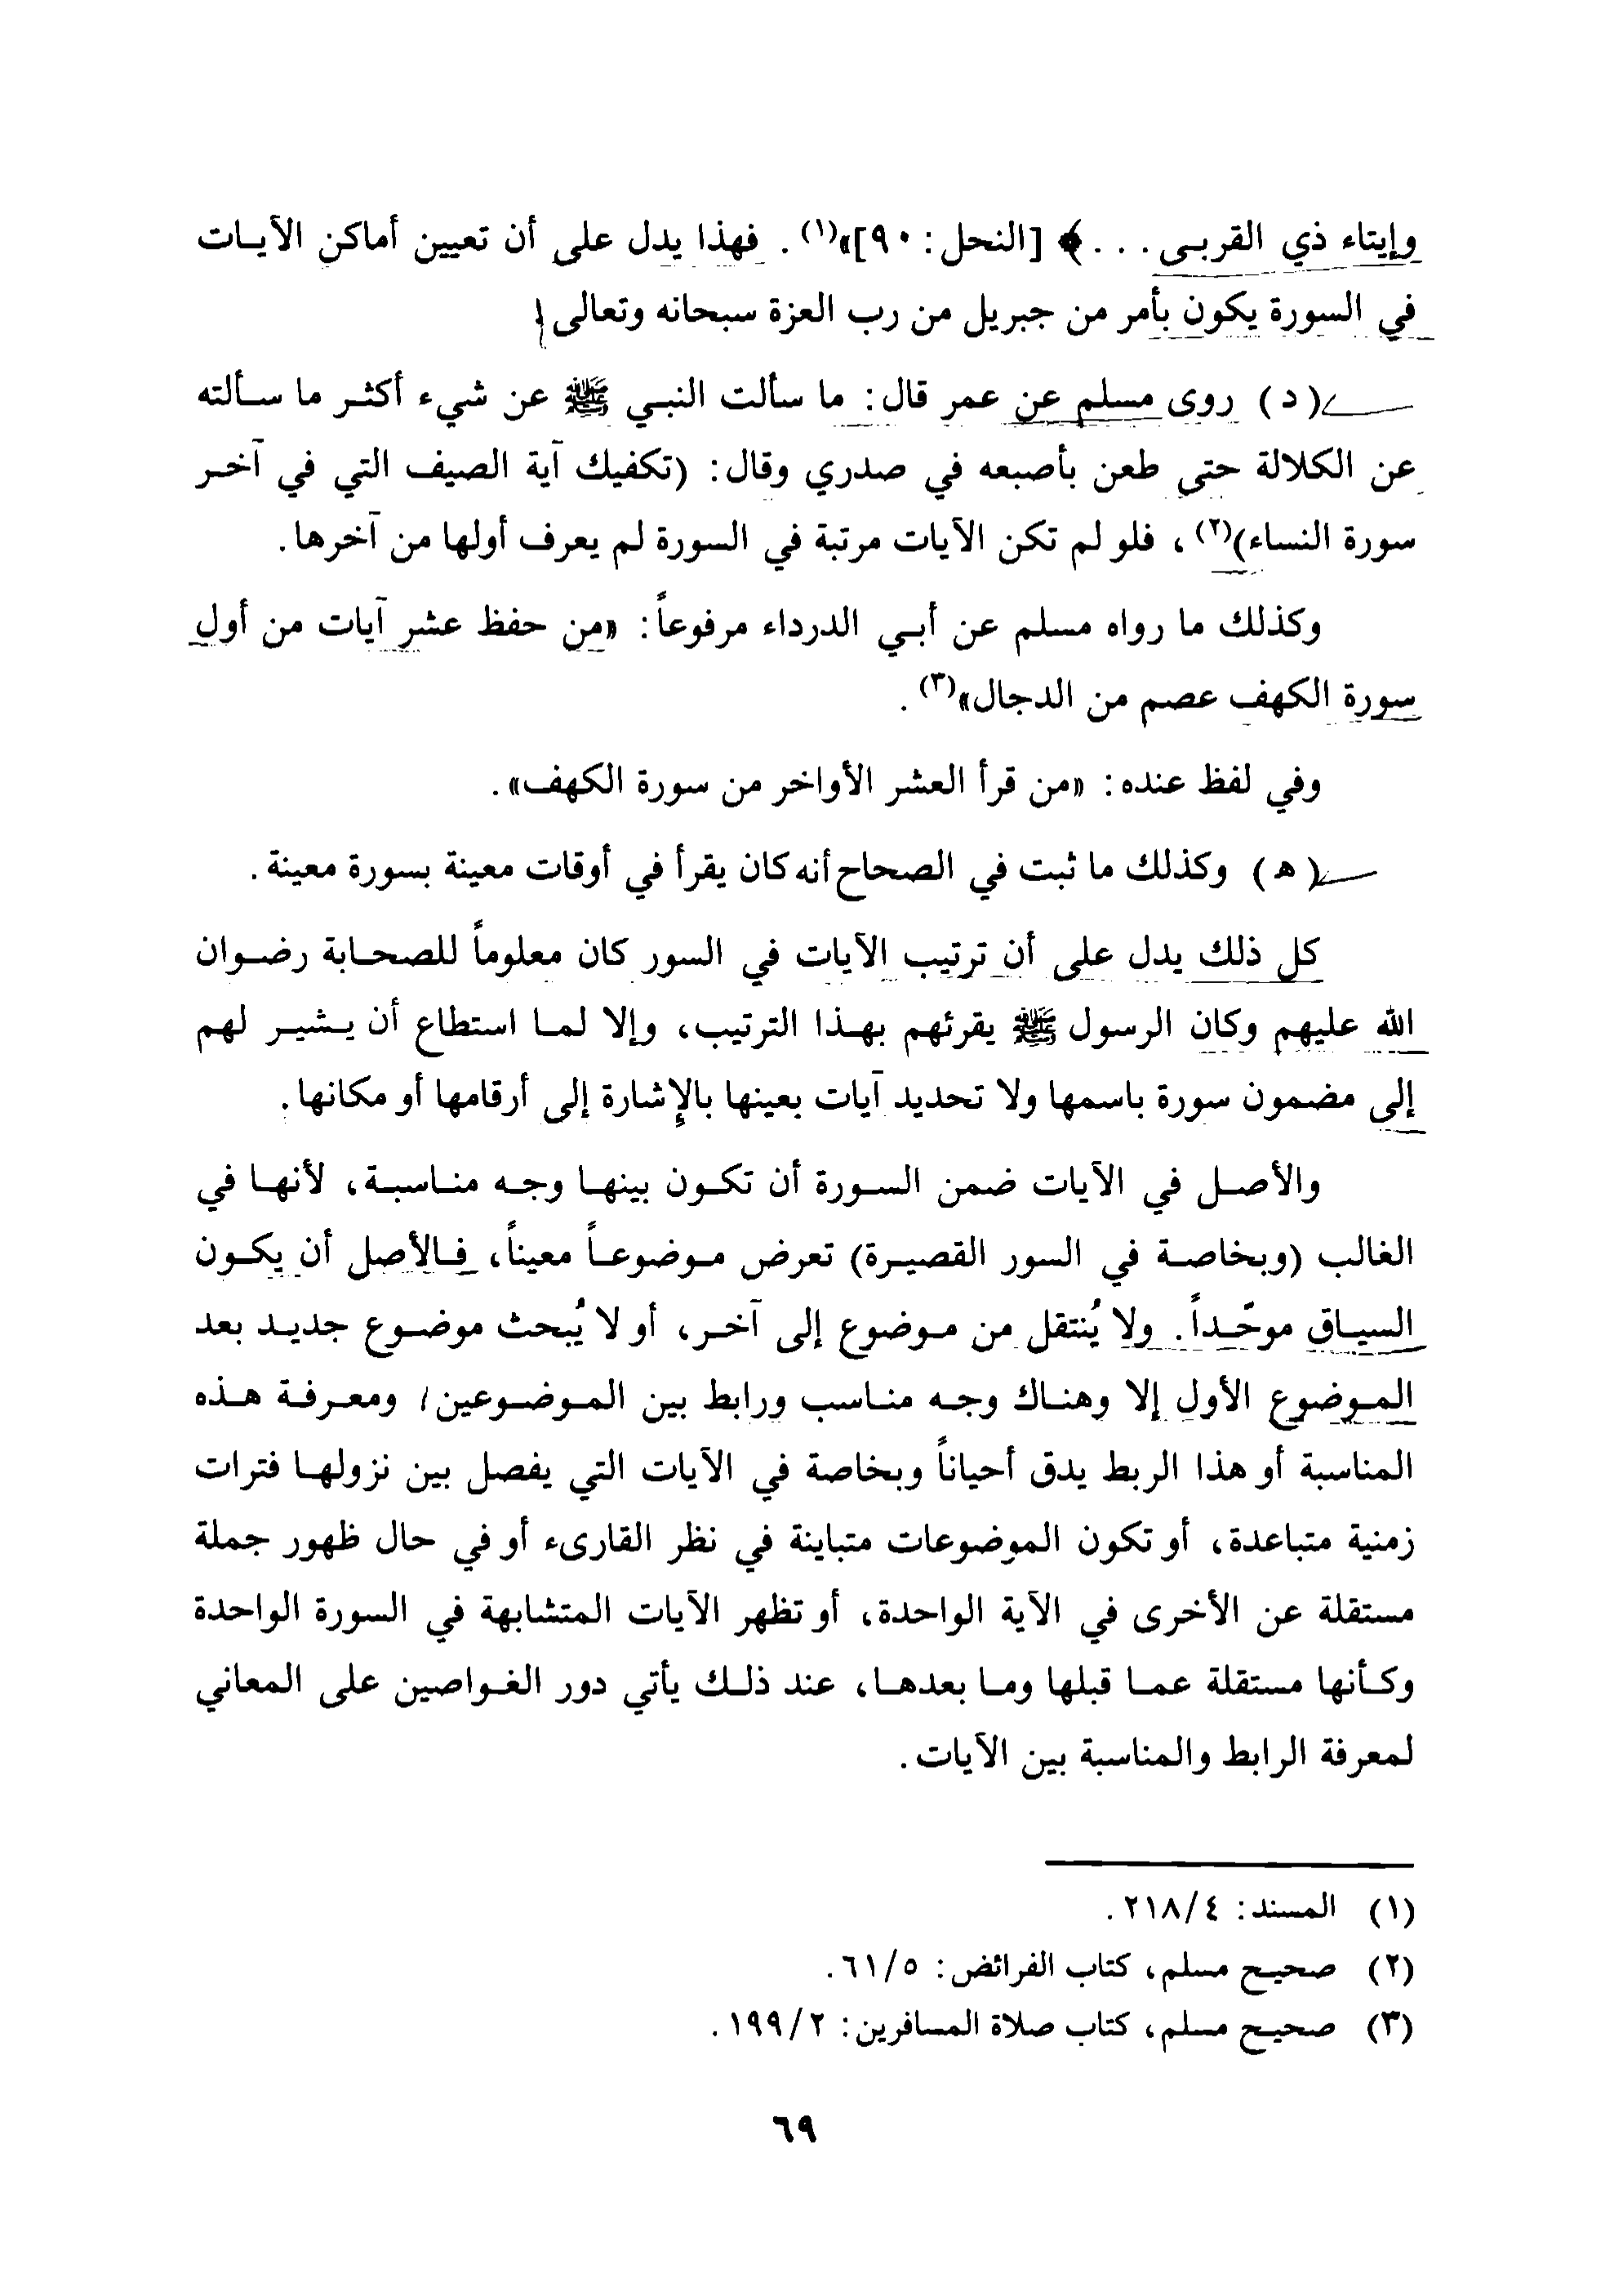 وإيتاء ذي القربى . . . ﴾ [النحل: ٩٠]»(١) . فهذا يدل على أن تعيين أماكن الآيات
في السورة يكون بأمر من جبريل من رب العزة سبحانه وتعالى .
(د) روى مسلم عن عمر قال: ما سألت النبي ﷺ عن شيء أكثر ما سألته
عن الكلالة حتى طعن بأصبعه في صدري وقال: (تكفيك آية الصيف التي في آخر
سورة النساء)(٢)، فلو لم تكن الآيات مرتبة في السورة لم يعرف أولها من آخرها.
وكذلك ما رواه مسلم عن أبي الدرداء مرفوعاً: «من حفظ عشر آيات من أول
سورة الكهف عصم من الدجال»(٣) .
وفي لفظ عنده: «من قرأ العشر الأواخر من سورة الكهف» .
(ه) وكذلك ما ثبت في الصحاح أنه كان يقرأ في أوقات معينة بسورة معينة .
كل ذلك يدل على أن ترتيب الآيات في السور كان معلوماً للصحابة رضوان
الله عليهم وكان الرسول ﷺ يقرئهم بهذا الترتيب، وإلا لما استطاع أن يشير لهم
إلى مضمون سورة باسمها ولا تحديد آيات بعينها بالإشارة إلى أرقامها أو مكانها .
والأصل في الآيات ضمن السورة أن تكون بينها وجه مناسبة، لأنها في
الغالب (وبخاصة في السور القصيرة) تعرض موضوعاً معيناً، فالأصل أن يكون
السياق موحّداً. ولا يُنتقل من موضوع إلى آخر، أو لا يُبحث موضوع جديد بعد
الموضوع الأول إلا وهناك وجه مناسب ورابط بين الموضوعين، ومعرفة هذه
المناسبة أو هذا الربط يدق أحياناً وبخاصة في الآيات التي يفصل بين نزولها فترات
زمنية متباعدة، أو تكون الموضوعات متباينة في نظر القارىء أو في حال ظهور جملة
مستقلة عن الأخرى في الآية الواحدة، أو تظهر الآيات المتشابهة في السورة الواحدة
وكأنها مستقلة عما قبلها وما بعدها، عند ذلك يأتي دور الغواصين على المعاني
لمعرفة الرابط والمناسبة بين الآيات .
(١) المسند: ٢١٨/٤ .
(٢) صحيح مسلم، كتاب الفرائض: ٦١/٥ .
(٣) صحيح مسلم، كتاب صلاة المسافرين: ١٩٩/٢ .
٦٩